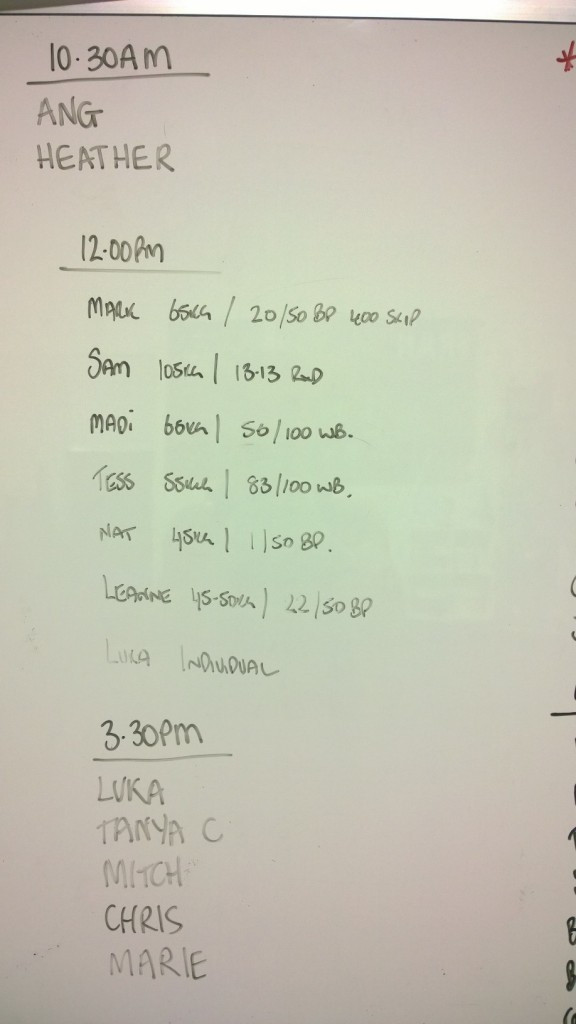 10.30AM
ANG
HEATHER
12.00PM
MARK 65KG / 20/50 BP 400 SKIP
SAM 105KG | 13.13 RND
MADi 60KG | 50/100 WB.
TESS 55KG | 83/100 WB.
NAT 45KG | 1/50 BP.
LEANNE 45-50KG | 22/50 BP
LUKA INDIVIDUAL
3.30PM
LUKA
TANYA C
MITCH
CHRIS
MARIE